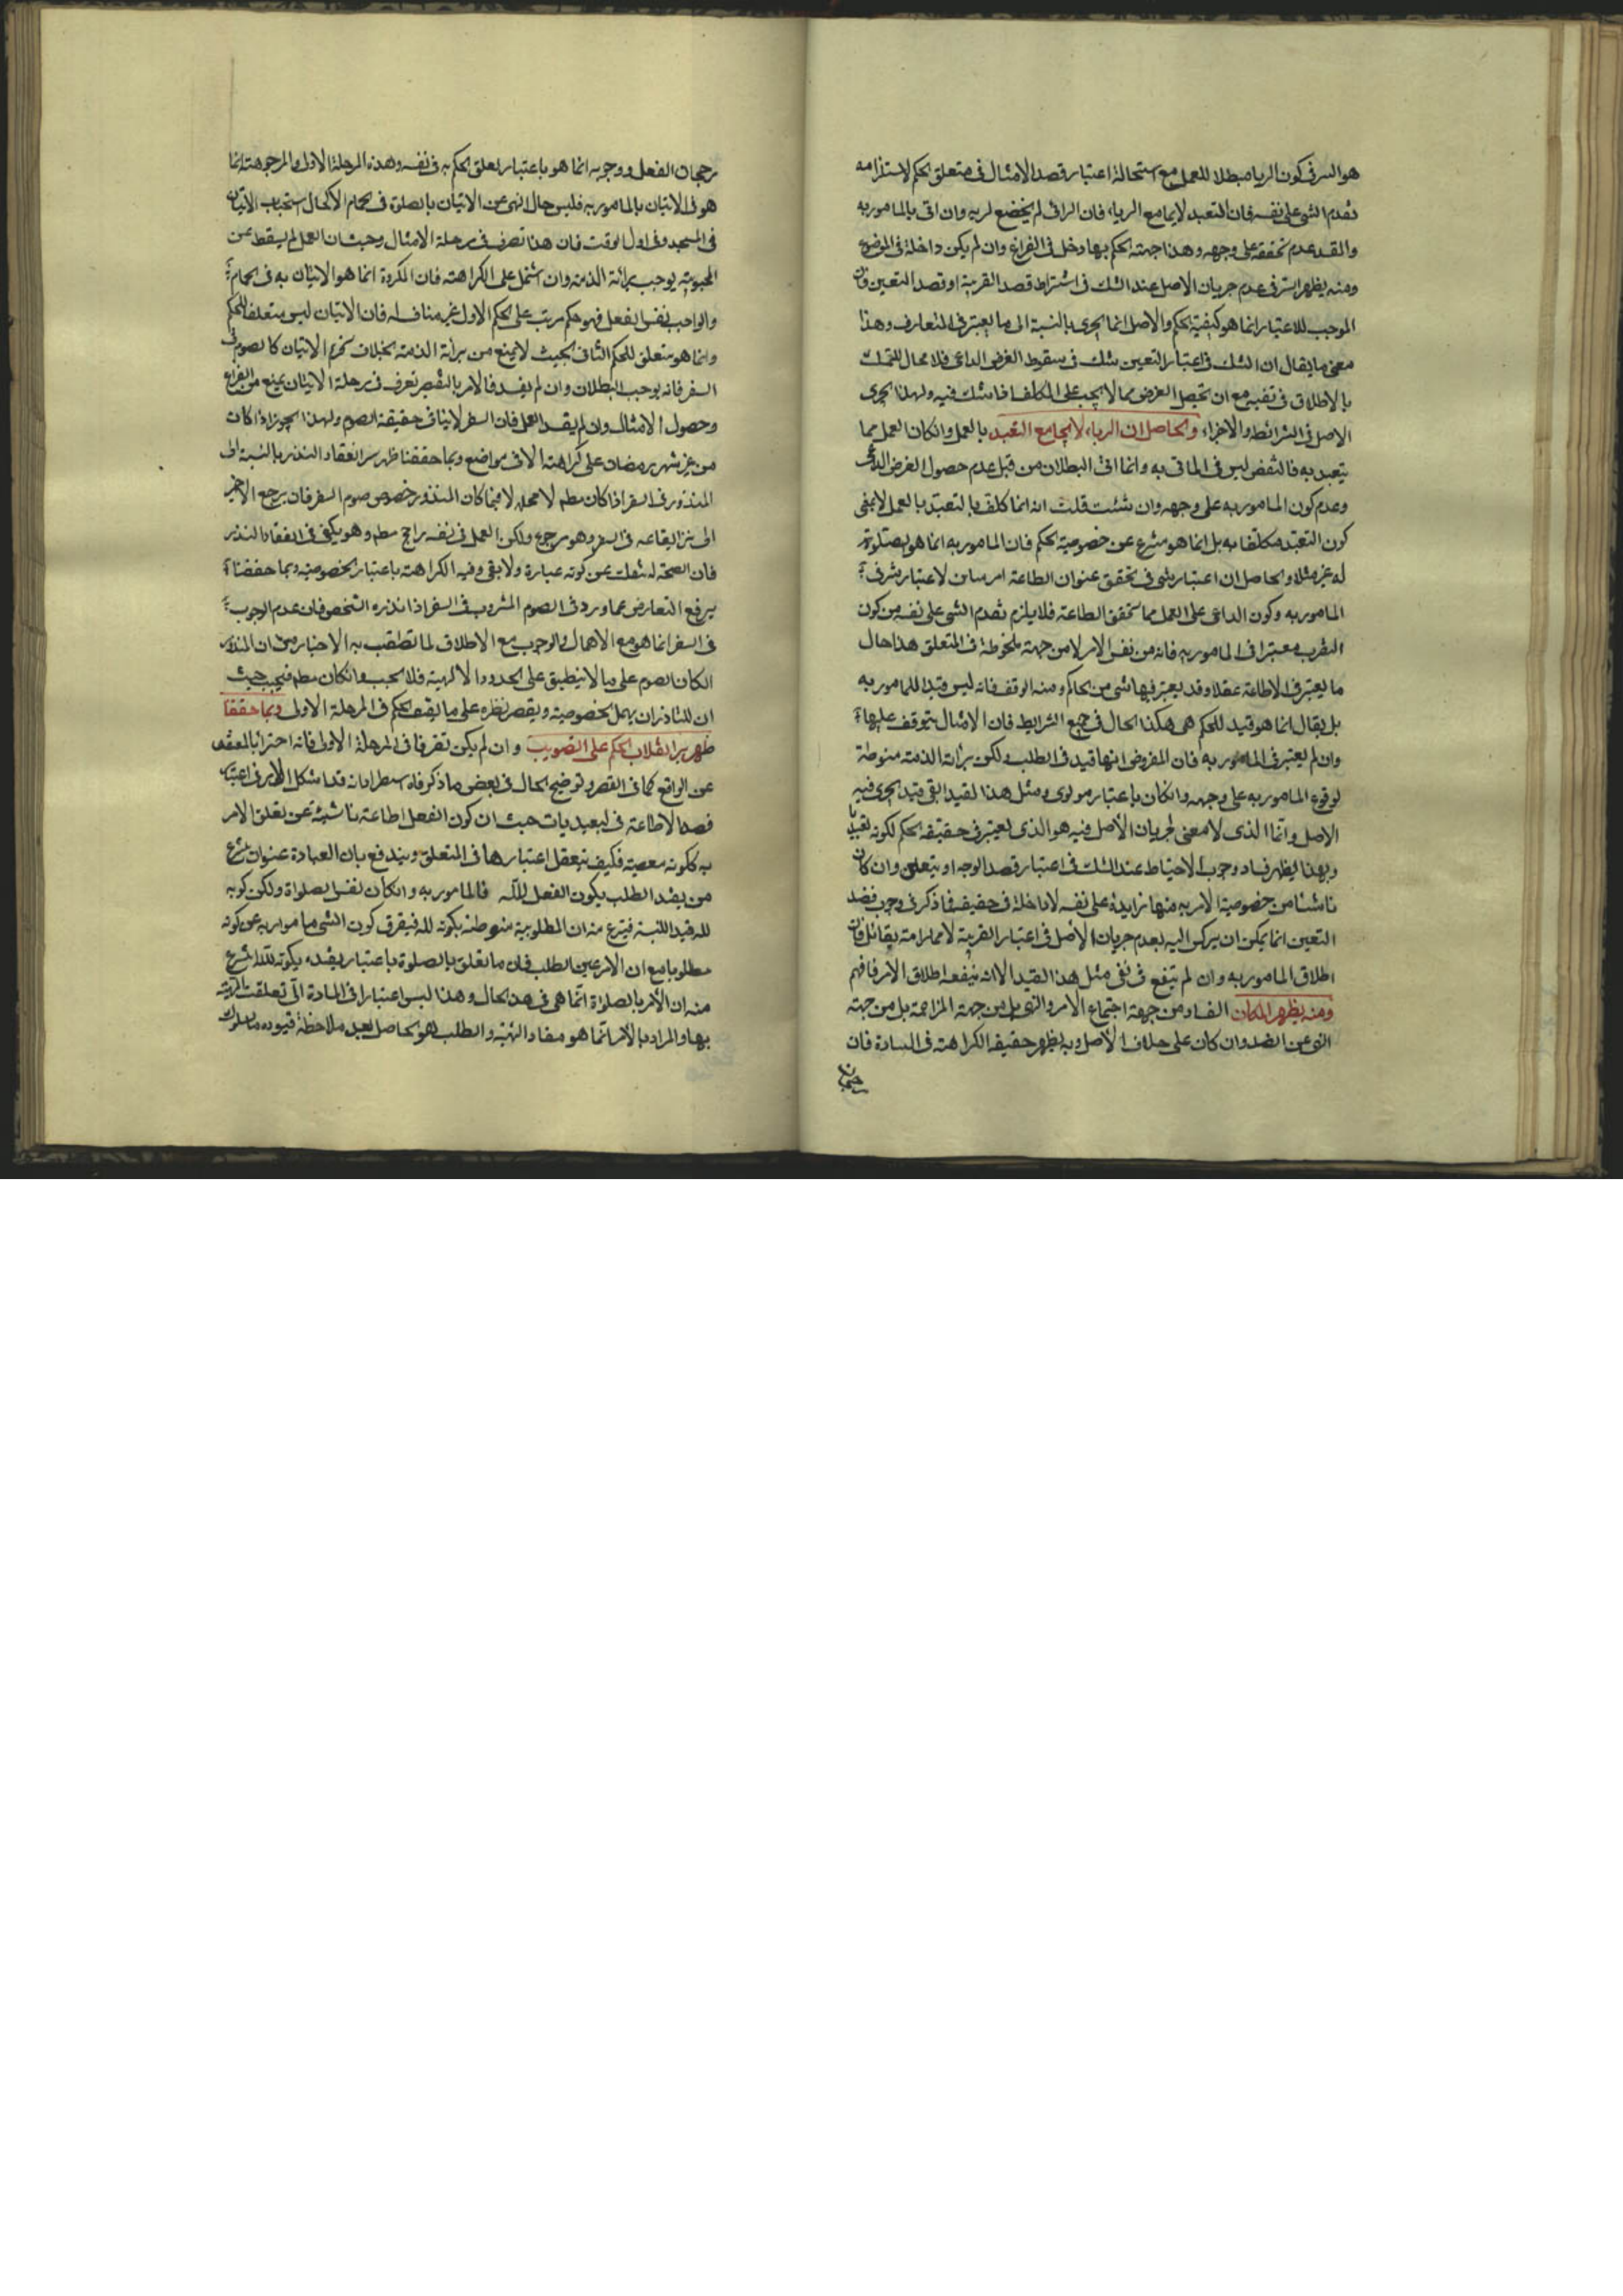 هو السر فى كون الريا مبطلا للعمل مع استحالة اعتبار قصد الامتثال فى متعلق الحكم لاستلزامه
تقدم الشئ على نفسه فان التعبد لا يجامع الرياء فان الرائى لم يخضع لربه وان اتى بالمامور به
والفسد عدم تحققه على وجهه وهذا جهة الحكم بها دخل فى الفراغ وان لم يكن داخلة فى الموضوع
ومنه يظهر السر فى عدم جريان الاصل عند الشك فى اشتراط قصد القربة او قصد التعيين فان
الموجب للاعتبار انما هو كيفية الحكم والاصل انما يجرى بالنسبة الى ما يعتبر فى المتعارف وهذا
معنى ما يقال ان الشك فى اعتبار التعيين شك فى سقوط الغرض الداعى فلا مجال للتمسك
بالاطلاق فى نفيه مع ان تحصيل الغرض مما لا يجب على المكلف فاشك فيه ولهذا يجرى
الاصل فى الشرائط والاجزاء والحاصل ان الرياء لا يجامع التعبد بالعمل وانكان العمل مما
يتعبد به فالنقص ليس فى الماتى به وانما اتى البطلان من قبل عدم حصول الغرض الداعى
وعدم كون المامور به على وجهه وان شئت قلت انه انما كلف بالتعبد بالعمل لا بمعنى
كون التعبد مكلفا به بل انما هو منتزع عن خصوصية الحكم فان المامور به انما هو الصلوة
له غير مثلا والحاصل ان اعتبار شئ فى تحقق عنوان الطاعة امر ساين لاعتبار شئ فى
المامور به وكون الداعى على العمل مما يتحقق الطاعة فلا يلزم تقدم الشئ على نفسه من كون
التقرب معتبرا فى المامور به فانه من نفس الامر لا من جهة ملحوظة فى المتعلق هذا حال
ما يعتبر فى الاطاعة عقلا وقد يعتبر فيها شئ من الحاكم ومنه الوقف فانه ليس قيدا للمامور به
بل يقال انما هو قيد للحكم هى هكذا الحال فى جميع الشرايط فان الامتثال يتوقف عليها
وان لم يعتبر فى المامور به فان المفروض انها قيد فى الطلب ولكن برائة الذمة منوطة
لوقوع المامور به على وجهه وانكان باعتبار مولوى ومثل هذا القيد ابقى قيد يجرى فيه
الاصل وانما الذى لا معنى لجريان الاصل فيه هو الذى يعتبر فى حقيقة الحكم لكونه تعبديا
وبهذا يظهر فساد وجوب الاحتياط عند الشك فى اعتبار قصد الوجه او يتعلق وان كان
ناشئا من خصوصية الامر به منها زايدة على نفسه لا داخلة فى حقيقته فما ذكر فى وجوب قصد
التعيين انما يمكن ان يركن اليه بعدم جريان الاصل فى اعتبار القربة لا مما رامه بقائل فان
اطلاق المامور به وان لم ينفع فى نفى مثل هذا القيد الا انه ينفعه اطلاق الامر فافهم
ومنه يظهر ان كان الفساد من جهة اجتماع الامر والنهى بل من جهة المزاحمة بل من جهة
النهى عن الضد وان كان على خلاف الاصل وبه يظهر حقيقة الكراهة فى العبادة فان
رجحان
رجحان الفعل ووجوبه انما هو باعتبار تعلق الحكم به فى نفسه وهذه المرحلة الاولى والمرجوحية انما
هو فى الاتيان بالمامور به فليس حال النهى عن الاتيان بالصلوة فى الحمام الا كحال استحباب الاتيان
فى المسجد وفى اول الوقت فان هذا تصرف فى مرحلة الامتثال وحيث ان العمل لم يسقط عن
المحبوبية يوجب برائة الذمة وان اشتمل على الكراهة فان المكروه انما هو الاتيان به فى الحمام
والواجب نفس الفعل فهو حكم مرتب على الحكم الاول غير مناف له فان الاتيان ليس متعلقا للحكم
وانما هو متعلق للحكم الثانى بحيث لا يمنع من براءة الذمة بخلاف تحريم الاتيان كالصوم فى
السفر فانه يوجب البطلان وان لم يفسد فالامر بالتقصير تصرف فى مرحلة الاتيان يمنع من الفراغ
وحصول الامتثال وان لم يفسد العمل فان السفر لا ينافى حقيقة الصوم ولهذا يجوز اذا كان
من غير شهر رمضان على كراهة الا فى مواضع وبما حققنا ظهر سر انعقاد النذر بالنسبة الى
المنذور فى السفر اذا كان مطم لا محله لا فيما كان المنذور خصوص صوم السفر فان يرجع الامر
الى نذر ايقاعه فى السفر وهو مرجوح ولكن العمل فى نفسه راجح مطم وهو يكفى فى انعقاد النذر
فان الصحة له نقلت عن كونه عبادة ولا بقى وفيه الكراهة باعتبار الخصوصية وبما حققنا
يرفع التعارض مما ورد فى الصوم المشروب فى السفر اذا نذره الشخص فان عدم الوجوب
فى السفر انما هو مع الاهمال والوجوب مع الاطلاق لما تطبقت به الاخبار من ان المنذور
انكان الصوم على ما لا ينطبق على الحدود الالهية فلا يجب وانكان مطم فيجب حيث
ان للناذر ان يهمل الخصوصية ويقصر نظره على ما يقف الحكم فى المرحلة الاولى وبما حققنا
ظهر سر انقلاب الحكم على التصويب وان لم يكن تفرقا فى المرحلة الاولى فانه احترازا بالمعقد
عن الواقع كما فى القصر وتوضيح الحال فى بعض ما ذكرناه استطرادا انه قد اشكل الامر فى اعتبار
قصد الاطاعة فى التعبديات حيث ان كون الفعل اطاعة ناشئة عن تعلق الامر
به ككونه معصية فكيف يتعقل اعتبارها فى المتعلق ويندفع بان العبادة عنوان ينتزع
من يفيد الطلب بكون الفعل لله فالمامور به وانكان نفس الصلواة ولكن كونه
لله قيد للنسبة فينتزع منه ان المطلوبية منوطة بكونه لله فيفرق كون الشئ مامورا به عن كونه
مطلوبا مع ان الامر عين الطلب فان ما تعلق بالصلوة باعتبار يفيده بكونه لله انتزع
منه ان الامر بالصلواة انما هى فى هذ الحال وهذا ليس اعتبارا فى المادة التى تعلقت الهيئة
بها والمراد بالامر انما هو مفاد الهيئة والطلب هو الحاصل بعد ملاحظة قيوده